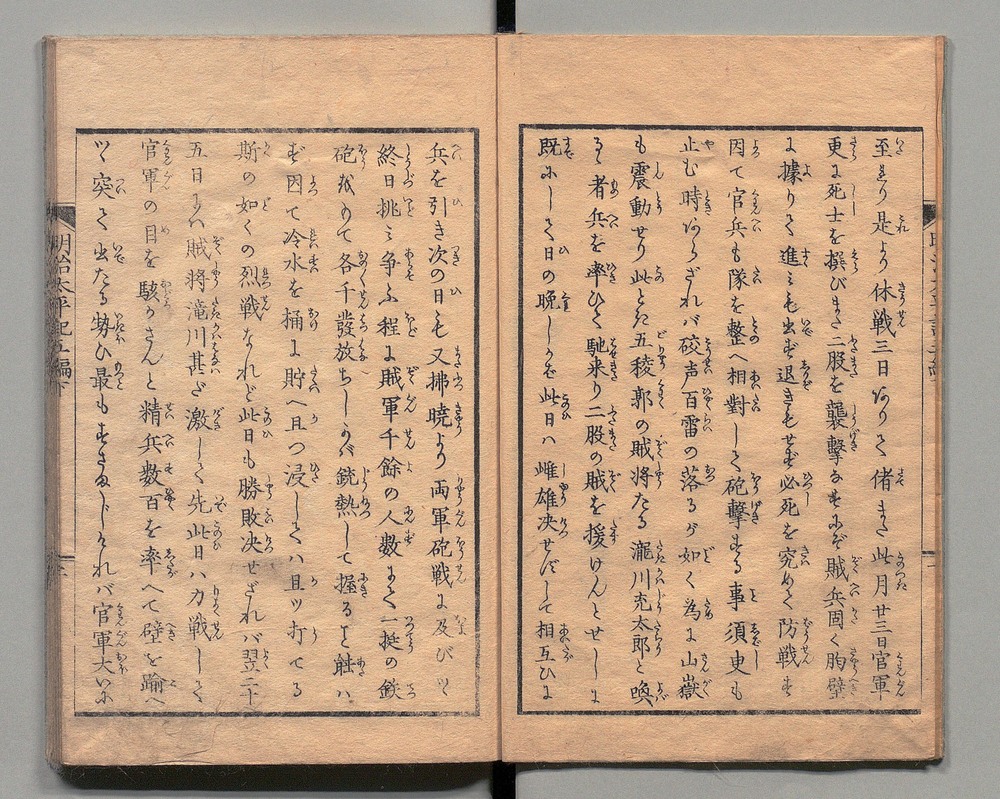 至り是より休戦三日ありて偖また此月廿三日官軍
更に死士を撰びまた二股を襲撃なすにぞ賊兵固く胸壁
に據りて進みも出ず退きもせず必死を究めて防戦す
因て官兵も隊を整へ相對して砲撃する事須臾も
止む時あらざれバ砲声百雷の落るが如く為に山嶽
も震動せり此とき五稜郭の賊将たる瀧川充太郎と喚
るゝ者兵を率ひて馳来り二股の賊を援けんとせしに
既にして日の晩しかバ此日ハ雌雄决せずして相互ひに
兵を引き次の日も又拂暁より両軍砲戦に及びツヽ
終日挑み争ふ程に賊軍千餘の人数にて一挺の鉄
砲をもて各千發放ちしかバ銃熱して握るに触ハ
ず因て冷水を桶に貯へ且つ浸してハ且ツ打てる
斯の如くの烈戦なれど此日も勝敗决せざれバ翌二十
五日にハ賊将滝川甚だ激して先此日ハ力戦して
官軍の目を駭かさんと精兵数百を率へて壁を踰へ
ツヽ突て出たる勢ひ最もすさましけれバ官軍大いに
明治太平記五編下